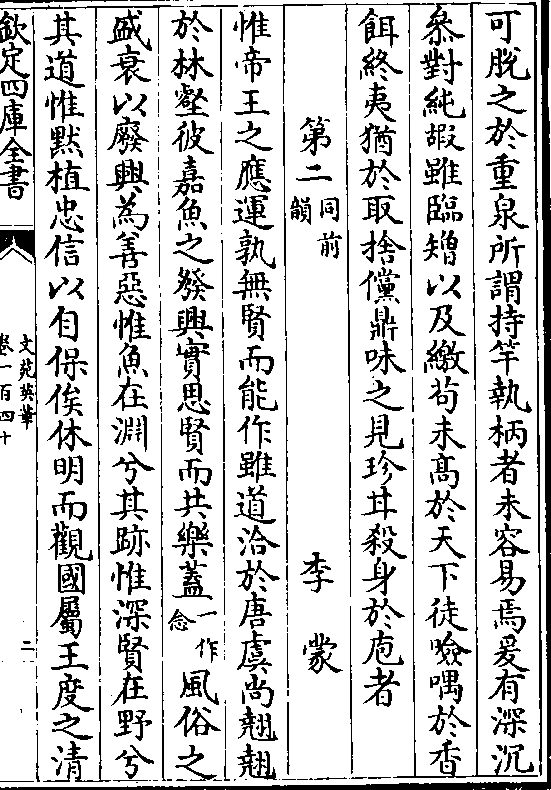 可脫之於重泉所謂持竿執柄者未容易焉爰有深沉
叅對純嘏雖臨矰以及繳苟未髙於天下徒噞喁於香
餌終夷猶於取捨儻鼎味之見珍甘殺身於庖者
第二同前韻 李蒙
惟帝王之應運孰無賢而能作雖道洽於唐虞尚翹翹
於林壑彼嘉魚之發興實思賢而共樂蓋一作念風俗之
盛衰以廢興為善惡惟魚在淵兮其跡惟深賢在野兮
其道惟黙植忠信以自保俟休明而觀國屬王度之清
欽定四庫全書
文苑英華
卷一百四十
二